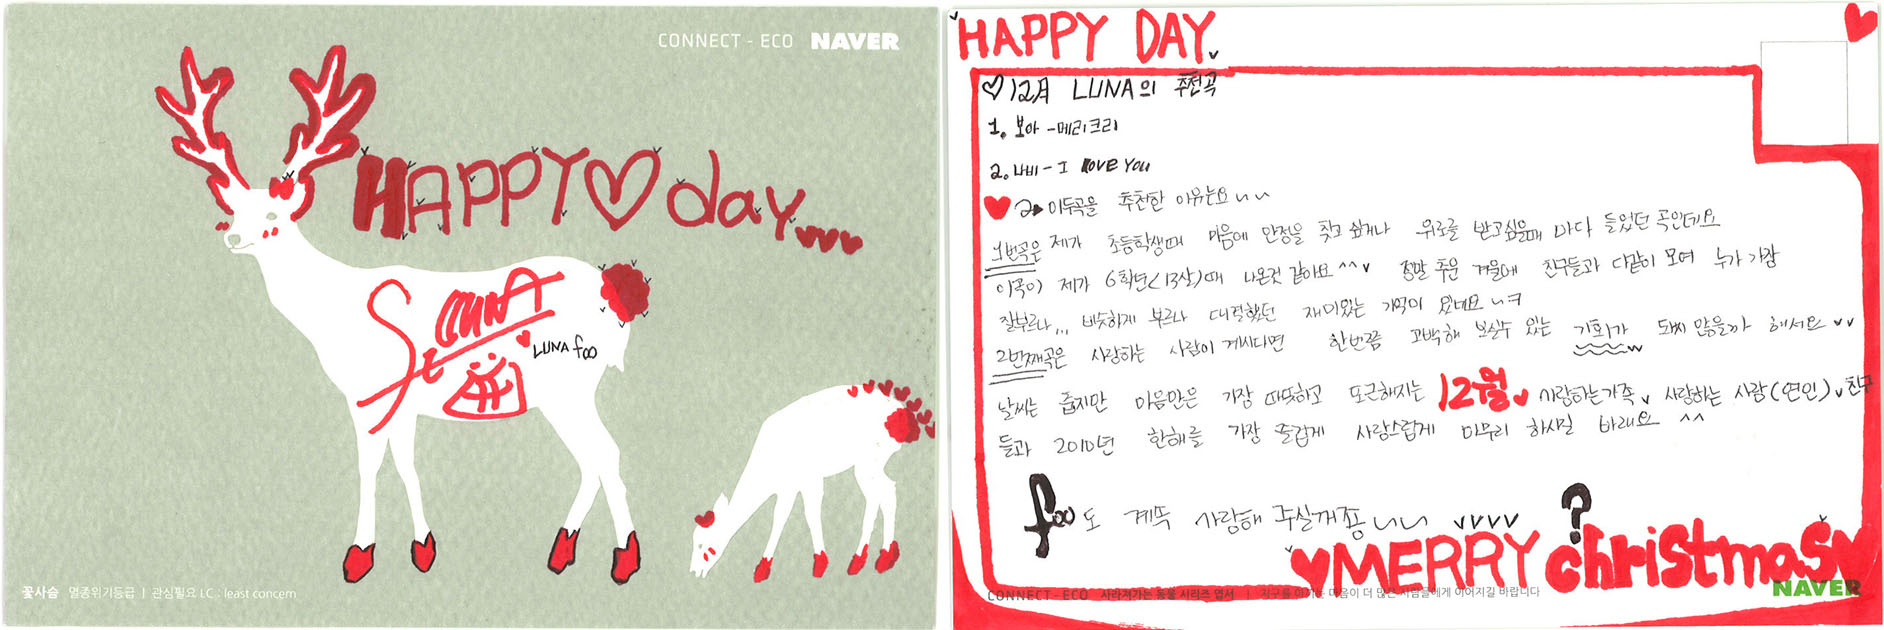 CONNECT - ECO NAVER
HAPPY♡day...
LUNA foo
꽃사슴 멸종위기등급 | 관심필요 LC : least concern
HAPPY DAY
♡12月 LUNA의 추천곡
1. 보아 -메리크리
2. 나비 - I LOVE YOU
이두곡을 추천한 이유는요~~
1번곡은 제가 초등학생때 마음에 안정을 찾고 싶거나 위로를 받고싶을때 마다 들었던 곡인데요
이곡이 제가 6학년(13살)때 나온것 같아요^^ 정말 추운 겨울에 친구들과 다같이 모여 누가 가장
잘부르나,,, 비슷하게 부르나 대결했던 재미있는 기억이 있네요
2번째곡은 사랑하는 사람이 계시다면 한번쯤 고백해 보실수 있는 기회가 되지 않을까 해서요
날씨는 춥지만 마음만은 가장 따뜻하고 포근해지는 12월 사랑하는가족, 사랑하는 사람(연인), 친구
들과 2010년 한해를 가장 즐겁게 사랑스럽게 마무리 하시길 바래요 ^^
foo도 계속 사랑해 주실거죵 ?
MERRY christmas
CONNECT - ECO 사라져가는 동물 시리즈 엽서 | 지구를 아끼는 마음이 더 많은 사람들에게 이어지길 바랍니다
NAVER